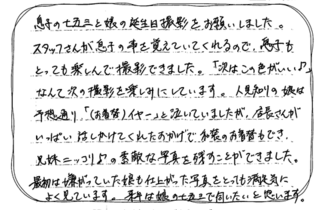 息子の七五三と娘の誕生日撮影をお願いしました。
スタッフさんが息子の事を覚えていてくれるので、息子も
とっても楽しんで撮影できました。「次はこの色がいい♪」
なんて次の撮影を楽しみにしています。人見知りの娘は
予想通り、「(お着替)イヤー」と泣いていましたが、店長さんが
いっぱいはしかけてくれたおかげで和装のお着替もでき、
兄妹ニッコリ♪の素敵な写真を残すことができました。
最初は嫌がっていた娘も仕上がった写真をとっても満足気に
よく見ています。来年は娘の七五三で伺いたいと思います。